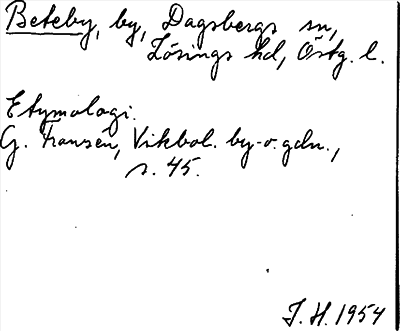 Beteby, by, Dagsbergs sn,
Lösings hd, Östg. l.
Etymologi.
G. Franzén, Vikbol. by- o. gdn.,
s. 45.
J. H. 1954